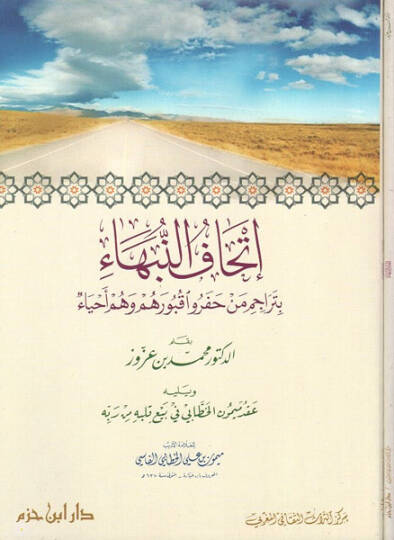 إتحاف النبهاء
بتراجم من حفروا قبورهم وهم أحياء
بقلم
الدكتور محمد بن عزوز
ويليه
عقد ميمون الخطابي في بيع قلبه من ربه
للعلامة الأديب
ميمون بن علي الخطابي الفاسي
مركز التراث الثقافي المغربي
دار ابن حزم